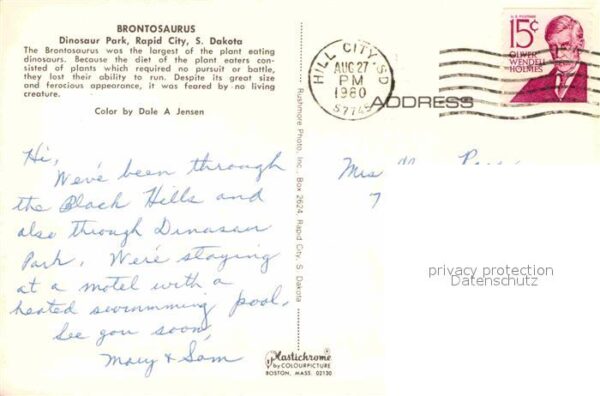 BRONTOSAURUS
Dinosaur Park, Rapid City, S. Dakota
The Brontosaurus was the largest of the plant eating
dinosaurs. Because the diet of the plant eaters con-
sisted of plants which required no pursuit or battle,
they lost their ability to run. Despite its great size
and ferocious appearance, it was feared by no living
creature.
Color by Dale A Jensen
Hi,
We've been through
the Black Hills and
also through Dinasaur
Park. We're staying
at a motel with a
heated swimming pool.
See you soon,
Mary & Sam
Rushmore Photo, Inc., Box 2624, Rapid City, S. Dakota
Plastichrome®
by COLOURPICTURE
BOSTON, MASS. 02130
HILL CITY SD
AUG 27
PM
1980
57745
U.S. POSTAGE
15¢
OLIVER
WENDELL
HOLMES
ADDRESS
Mrs
7
privacy protection
Datenschutz